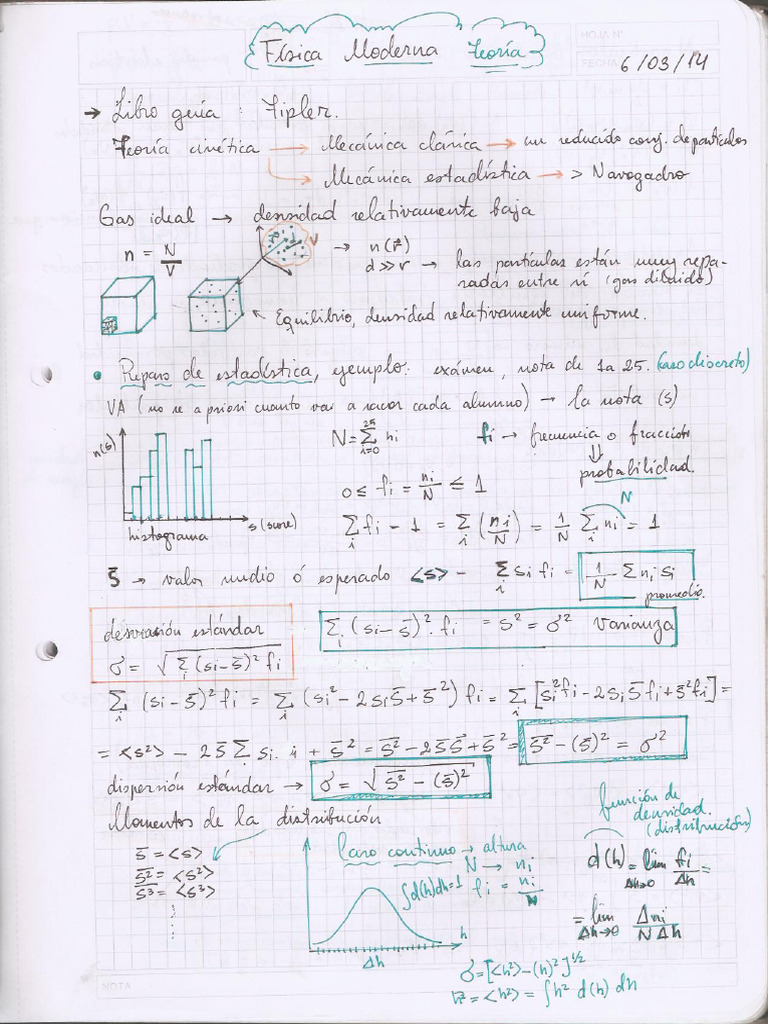 Física Moderna Teoría
HOJA Nº
FECHA 6/03/14
→ Libro guía : Tipler.
Teoría cinética → Mecánica clásica → un reducido conj. de partículos
→ Mecánica estadística → > Navogadro
Gas ideal → densidad relativamente baja
n = N/V
V
→ n(r⃗)
d ≫ r → las partículas están muy sepa-
radas entre sí (gas diluido)
← Equilibrio, densidad relativamente uniforme.
• Repaso de estadística, ejemplo: exámen, nota de 1 a 25. (caso discreto)
VA (no se a priori cuanto vai a sacar cada alumno) → la nota (s)
n(s)
s (score)
histograma
N = Σ_{i=0}^{25} ni
fi → frecuencia o fracción
⇓
probabilidad.
0 ≤ fi = ni/N ≤ 1
N
Σ_i fi - 1 = Σ_i (ni/N) = 1/N Σ_i ni = 1
s̄ → valor medio ó esperado <s> - Σ_i si fi = 1/N - Σ ni si
promedio.
desviación estándar
σ = √(Σ_i (si - s̄)² fi)
Σ_i (si - s̄)². fi = s² = σ² Varianza
Σ_i (si - s̄)² fi = Σ_i (si² - 2si s̄ + s̄²) fi = Σ_i [si² fi - 2si s̄ fi + s̄² fi] =
= <s²> - 2s̄ Σ si. + s̄² = s̄² - 2s̄ s̄ + s̄² = s̄² - (s̄)² = σ²
dispersión estándar → σ = √(s̄² - (s̄)²)
Momentos de la distribución
s̄ = <s>
s̄² = <s²>
s̄³ = <s³>
⋮
Caso continuo → altura
N → ni
∫d(h)dh = 1
fi = ni/N
h
Δh
función de
densidad.
(distribución)
d(h) = lim_{Δh→0} fi/Δh =
= lim_{Δh→0} Δni/NΔh
σ = [<h²> - (h)²]^{1/2}
h̄² = <h²> = ∫h² d(h) dh
NOTA